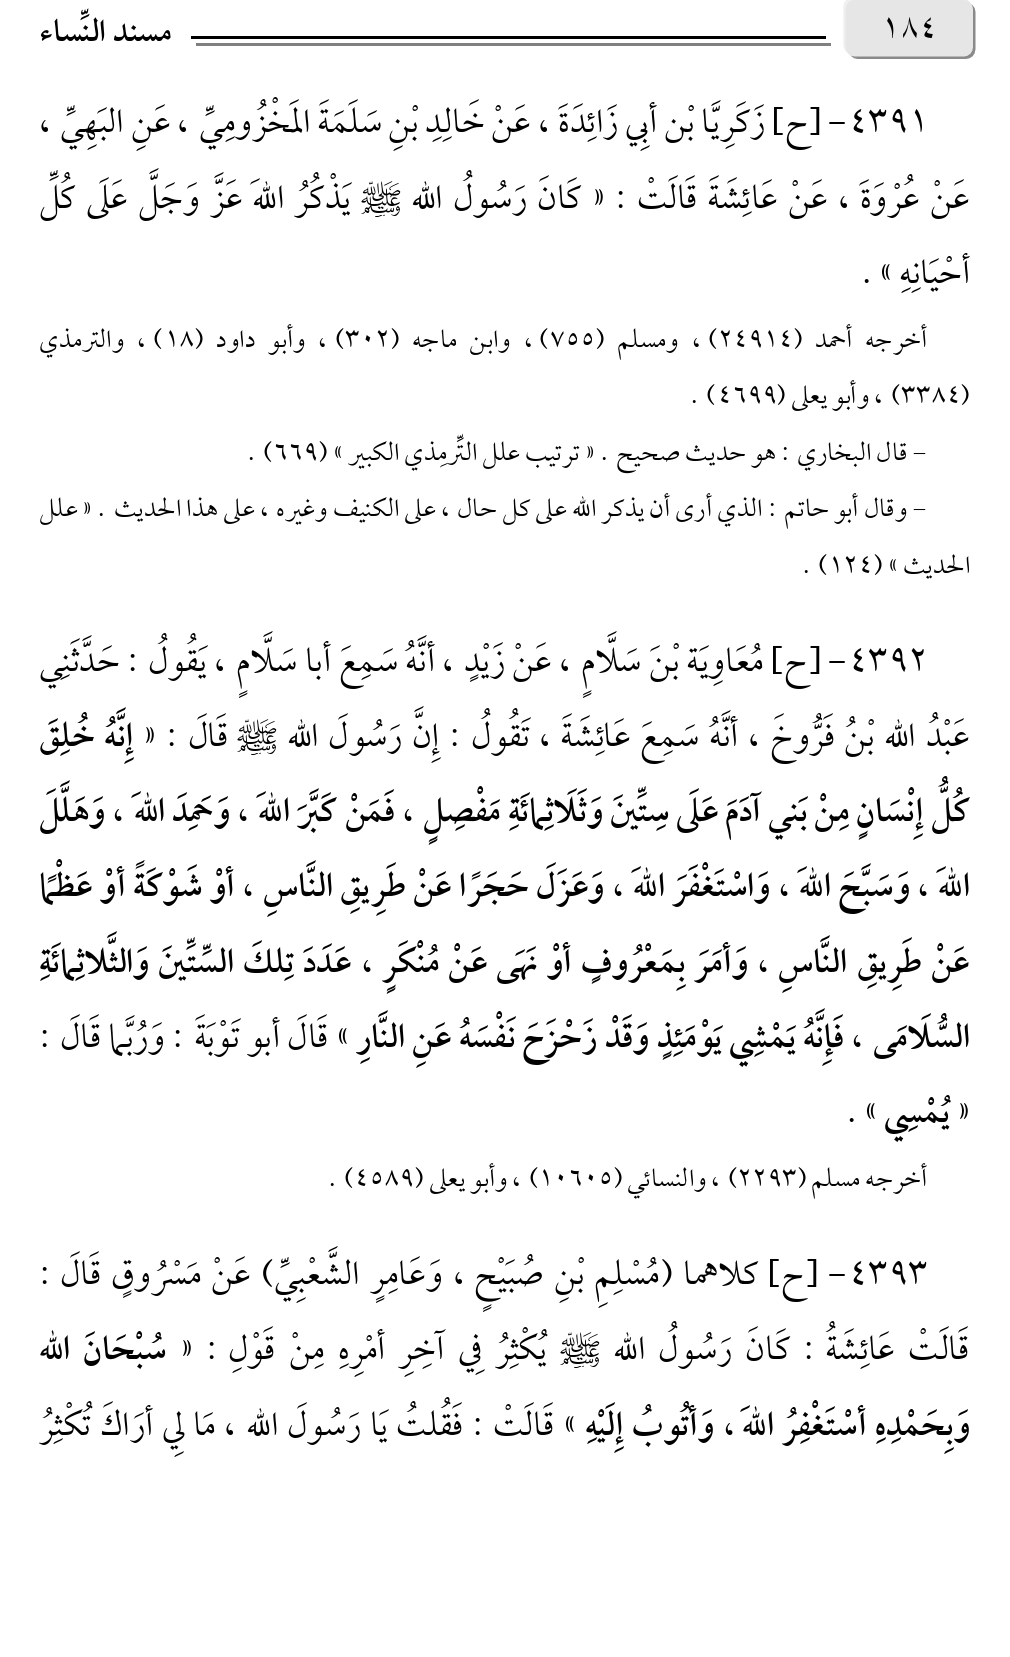 ١٨٤ مسند النِّساء
٤٣٩١- [ح] زَكَرِيَّا بْن أبِي زَائِدَةَ ، عَنْ خَالِدِ بْنِ سَلَمَةَ المَخْزُومِيِّ ، عَنِ البَهِيِّ ،
عَنْ عُرْوَةَ ، عَنْ عَائِشَةَ قَالَتْ : « كَانَ رَسُولُ الله ﷺ يَذْكُرُ اللهَ عَزَّ وَجَلَّ عَلَى كُلِّ
أحْيَانِهِ » .
أخرجه أحمد (٢٤٩١٤) ، ومسلم (٧٥٥) ، وابن ماجه (٣٠٢) ، وأبو داود (١٨) ، والترمذي
(٣٣٨٤) ، وأبو يعلى (٤٦٩٩) .
– قال البخاري : هو حديث صحيح . « ترتيب علل التِّرمِذي الكبير » (٦٦٩) .
– وقال أبو حاتم : الذي أرى أن يذكر الله على كل حال ، على الكنيف وغيره ، على هذا الحديث . « علل
الحديث » (١٢٤) .
٤٣٩٢- [ح] مُعَاوِيَة بْنَ سَلَّامٍ ، عَنْ زَيْدٍ ، أنَّهُ سَمِعَ أبا سَلَّامٍ ، يَقُولُ : حَدَّثَنِي
عَبْدُ الله بْنُ فَرُّوخَ ، أنَّهُ سَمِعَ عَائِشَةَ ، تَقُولُ : إِنَّ رَسُولَ الله ﷺ قَالَ : « إِنَّهُ خُلِقَ
كُلُّ إِنْسَانٍ مِنْ بَني آدَمَ عَلَى سِتِّينَ وَثَلَاثِمائَةِ مَفْصِلٍ ، فَمَنْ كَبَّرَ اللهَ ، وَحَمِدَ اللهَ ، وَهَلَّلَ
اللهَ ، وَسَبَّحَ اللهَ ، وَاسْتَغْفَرَ اللهَ ، وَعَزَلَ حَجَرًا عَنْ طَرِيقِ النَّاسِ ، أوْ شَوْكَةً أوْ عَظْمًا
عَنْ طَرِيقِ النَّاسِ ، وَأمَرَ بِمَعْرُوفٍ أوْ نَهَى عَنْ مُنْكَرٍ ، عَدَدَ تِلكَ السِّتِّينَ وَالثَّلاثِمائَةِ
السُّلَامَى ، فَإِنَّهُ يَمْشِي يَوْمَئِذٍ وَقَدْ زَحْزَحَ نَفْسَهُ عَنِ النَّارِ » قَالَ أبو تَوْبَةَ : وَرُبَّما قَالَ :
« يُمْسِي » .
أخرجه مسلم (٢٢٩٣) ، والنسائي (١٠٦٠٥) ، وأبو يعلى (٤٥٨٩) .
٤٣٩٣- [ح] كلاهما (مُسْلِمِ بْنِ صُبَيْحٍ ، وَعَامِرٍ الشَّعْبِيِّ) عَنْ مَسْرُوقٍ قَالَ :
قَالَتْ عَائِشَةُ : كَانَ رَسُولُ الله ﷺ يُكْثِرُ فِي آخِرِ أمْرِهِ مِنْ قَوْلِ : « سُبْحَانَ الله
وَبِحَمْدِهِ أسْتَغْفِرُ اللهَ ، وَأتُوبُ إِلَيْهِ » قَالَتْ : فَقُلتُ يَا رَسُولَ الله ، مَا لِي أرَاكَ تُكْثِرُ